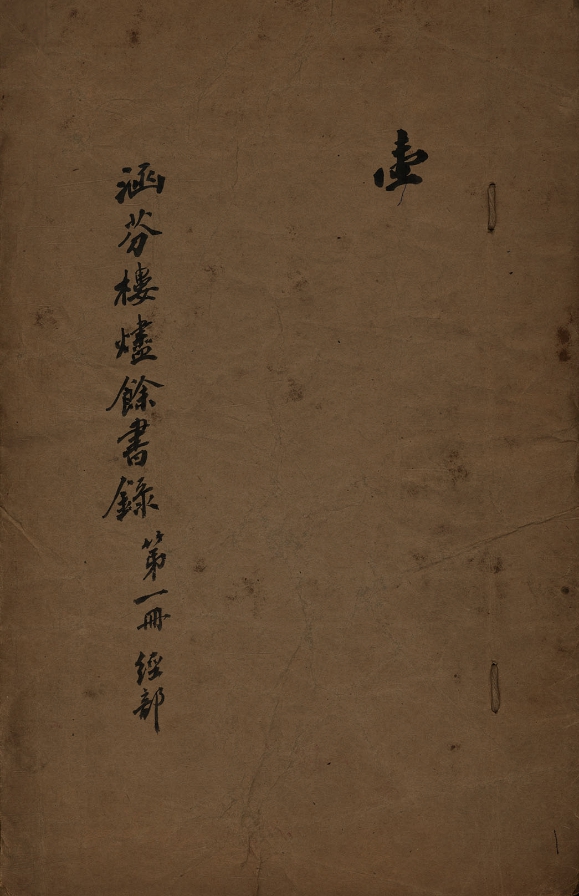 涵芬樓燼餘書錄 第一冊 經部